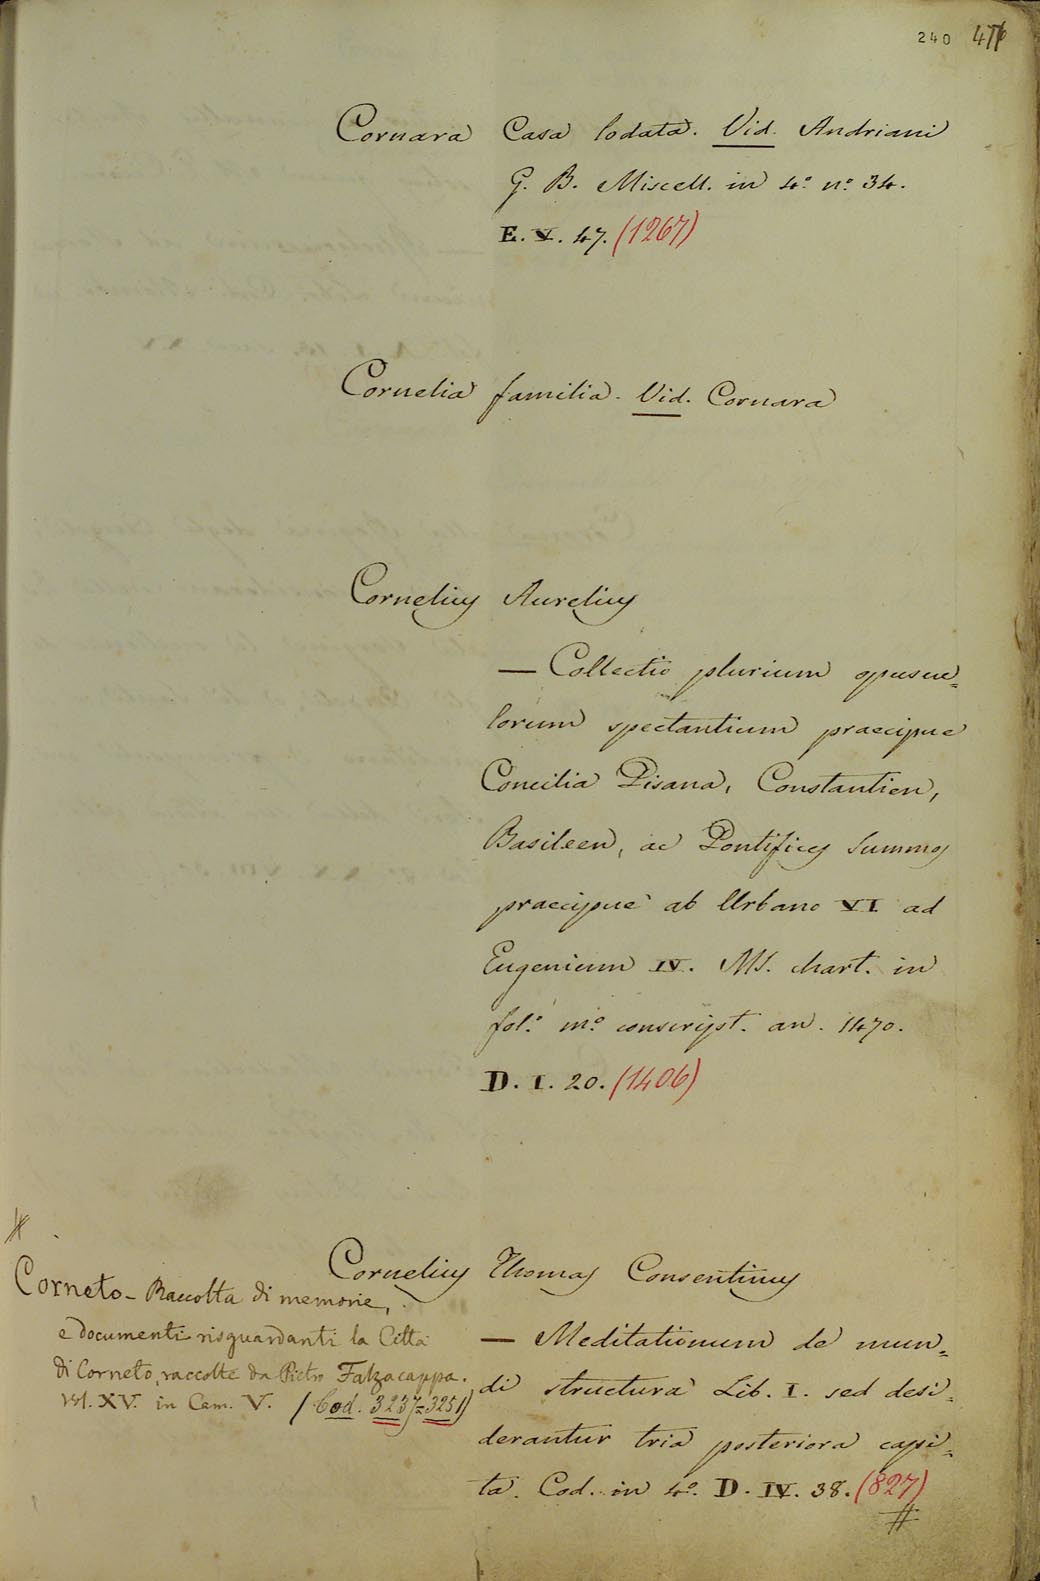 240 476
Cornara Casa lodata. Vid. Andriani
G. B. Miscell. in 4.º n.º 34.
E. V. 47. (1267)
Cornelia familia. Vid. Cornara
Cornelius Aurelius
— Collectio plurium opuscu=
lorum spectantium praecipue
Concilia Pisana, Constantien,
Basileen, ac Pontifices Summos
praecipuè ab Urbano VI ad
Eugenium IV. MS. chart. in
fol.º m.º conscript. an. 1470.
D. I. 20. (1406)
Cornelius Thomas Consentinus
— Meditationum de mun=
di structura Lib. I. sed desi=
derantur tria posteriora capi=
ta. Cod. in 4.º D. IV. 38. (827)
#
#
Corneto - Raccolta di memorie,
e documenti risguardanti la Città
di Corneto, raccolte da Pietro Falzacappa.
vol. XV. in Cam. V. (Cod. 3237=3251)